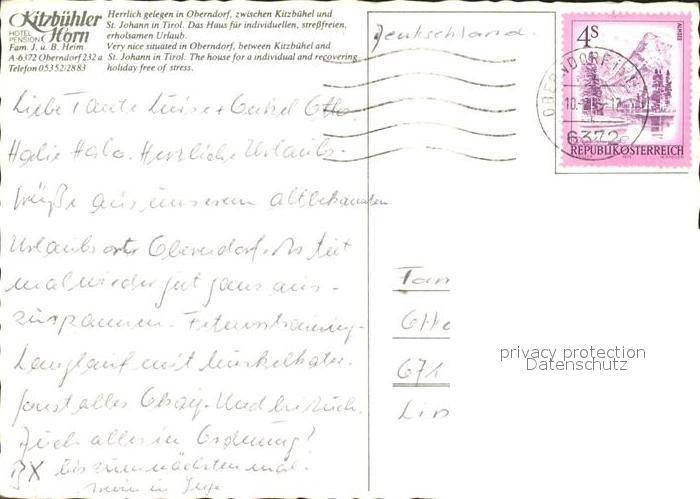 Kitzbühler Horn
HOTEL PENSION
Fam. J. u. B. Heim
A-6372 Oberndorf 232 a
Telefon 05352/2883
Herrlich gelegen in Oberndorf, zwischen Kitzbühel und
St. Johann in Tirol. Das Haus für individuellen, streßfreien,
erholsamen Urlaub.
Very nice situated in Oberndorf, between Kitzbühel and
St. Johann in Tirol. The house for a individual and recovering
holiday free of stress.
Deutschland.
4S
ALMSEE
OBERNDORF IN
6372
REPUBLIK ÖSTERREICH
Liebe Tante Luise + Onkel Otto.
Hallo. Herzliche Urlaubs-
grüße aus unserem altbekannten
Urlaubsort Oberndorf. Es tut
mal wieder gut ganz aus-
zuspannen. Fitnesstraining-
Langlauf mit Muskelkater.
Sonst alles Okay. Und bei Euch.
Auch alles in Ordnung?
bis zum nächsten mal.
Fam
Otto
671
Lim
privacy protection
Datenschutz